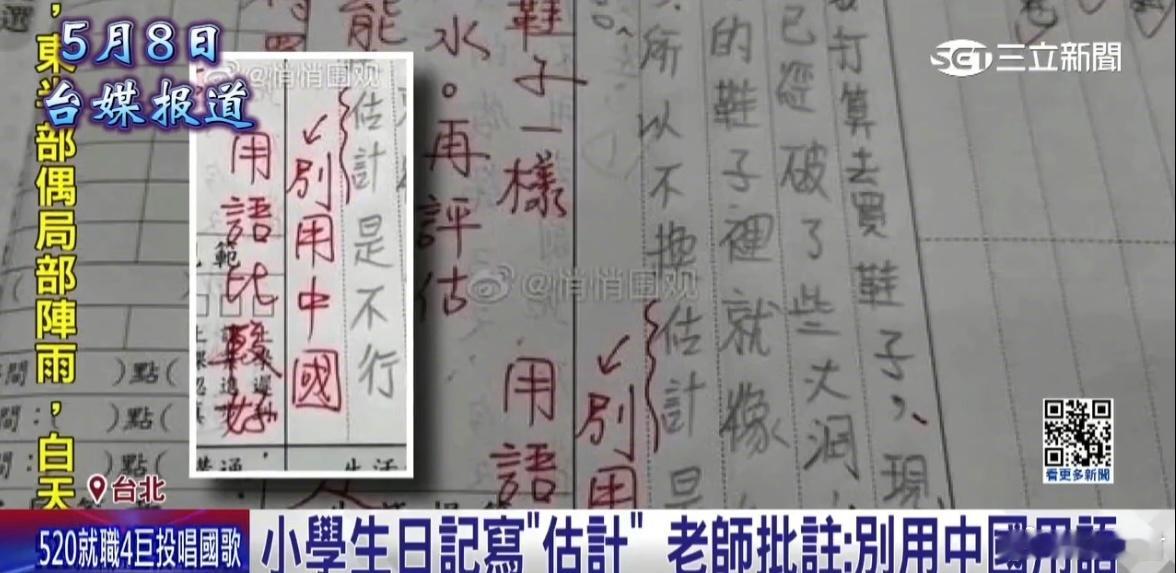 5月8日
台媒报道
SET三立新聞
部偶局部陣雨，白天
@悄悄圍观
估計是不行
↙別用中國
用語比較好
打算去買鞋子，現
已經破了些大洞，
的鞋子裡就像
所以不換估計是
↙別用
用語
鞋子一樣
水。再評估
能
@悄悄圍观
)點(
間：( )點(
間：( )點(
看更多新聞
台北
520就職4巨投唱國歌
小學生日記寫"估計" 老師批註:別用中國用語